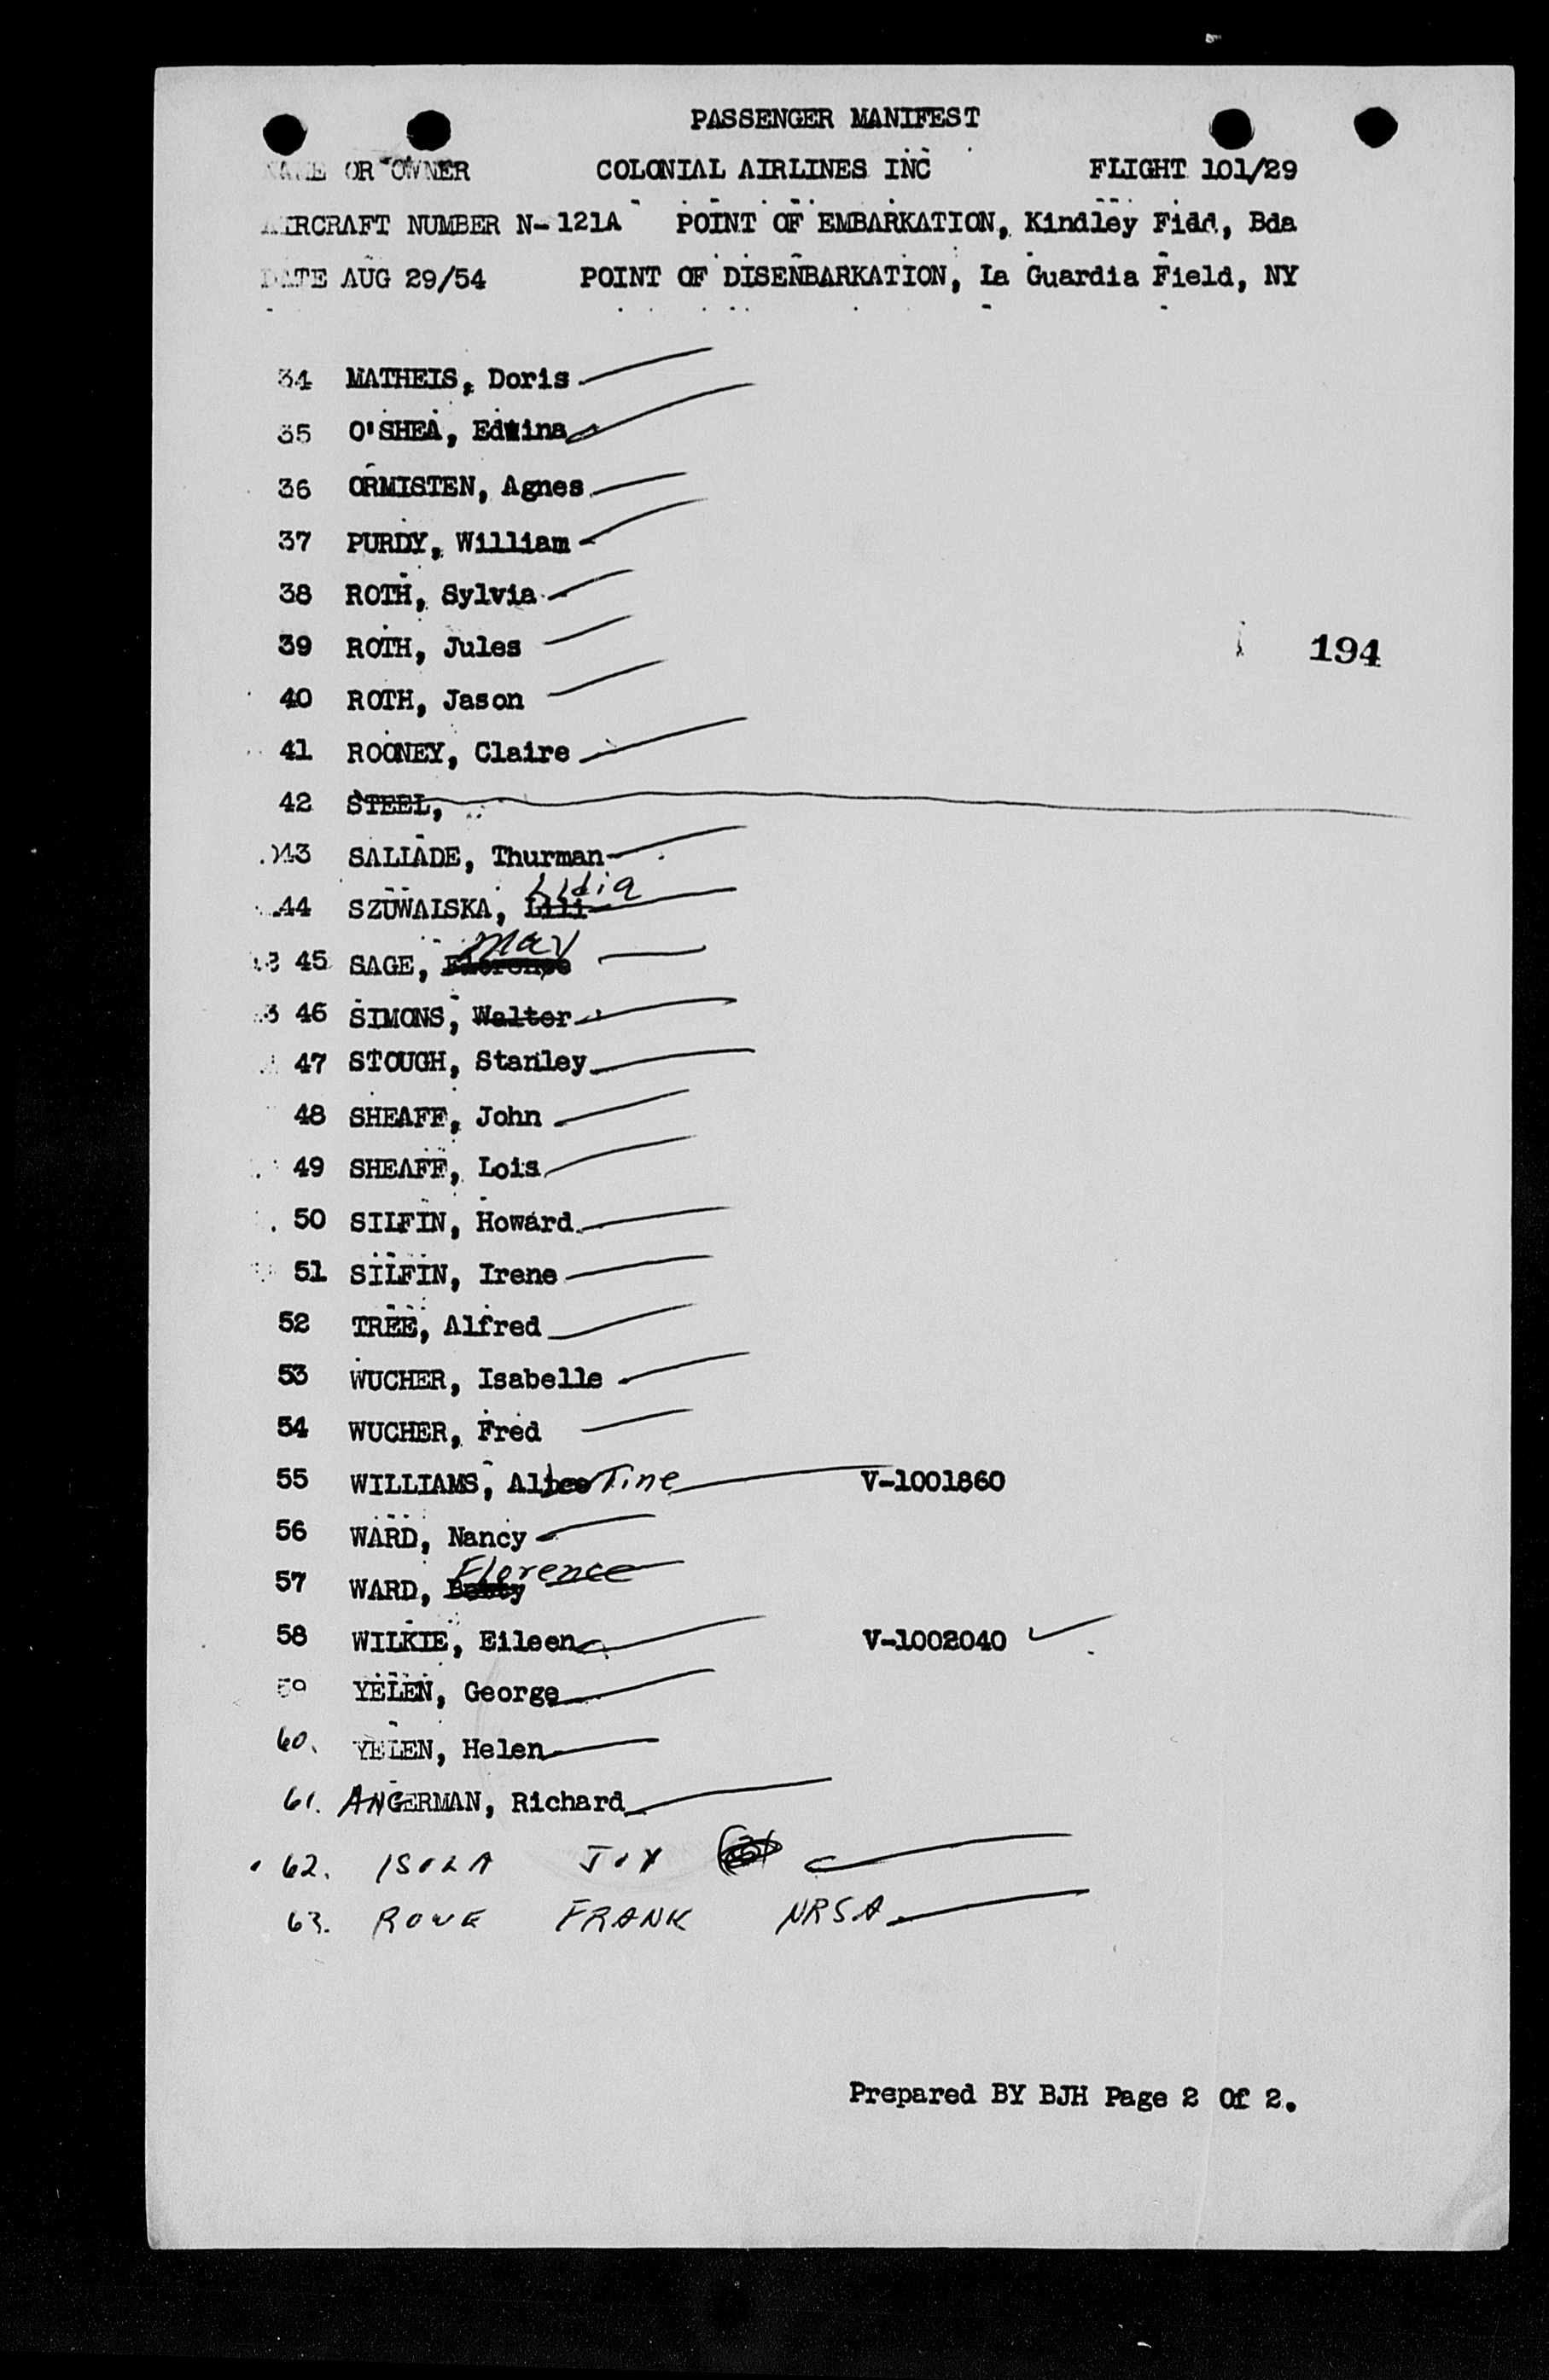 PASSENGER MANIFEST
NAME OR OWNER COLONIAL AIRLINES INC FLIGHT 101/29
AIRCRAFT NUMBER N-121A POINT OF EMBARKATION, Kindley Fidd, Bda
DATE AUG 29/54 POINT OF DISENBARKATION, La Guardia Field, NY
34 MATHEIS, Doris
35 O'SHEA, Edwina
36 ORMISTEN, Agnes
37 PURDY, William
38 ROTH, Sylvia
39 ROTH, Jules
194
40 ROTH, Jason
41 ROONEY, Claire
42 STEEL,
43 SALIADE, Thurman
44 SZUWALSKA, Lili Lidia
45 SAGE, Florence May
46 SIMONS, Walter
47 STOUGH, Stanley
48 SHEAFF, John
49 SHEAFF, Lois
50 SILFIN, Howard
51 SILFIN, Irene
52 TREE, Alfred
53 WUCHER, Isabelle
54 WUCHER, Fred
55 WILLIAMS, AlberTine V-1001860
56 WARD, Nancy
57 WARD, Florence
58 WILKIE, Eileen V-1002040
59 YELEN, George
60. YELEN, Helen
61. ANGERMAN, Richard
62. ISOLA JOY
63. ROWE FRANK NRSA
Prepared BY BJH Page 2 Of 2.